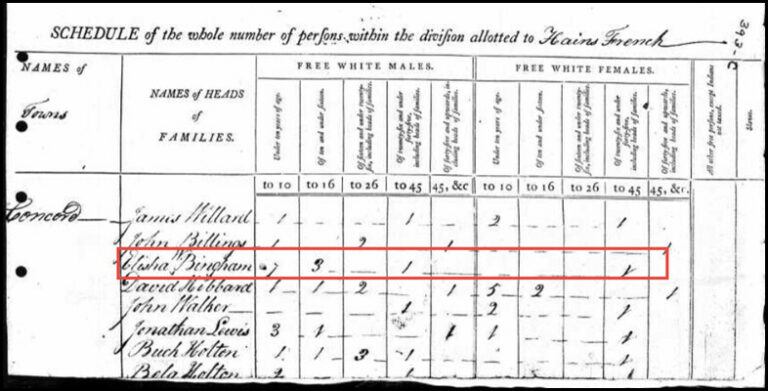 SCHEDULE of the whole number of persons within the division allotted to Hains French
393
C
NAMES of
Towns
NAMES of HEADS
of
FAMILIES.
FREE WHITE MALES.
FREE WHITE FEMALES.
Under ten years of age.
Of ten and under sixteen.
Of sixteen and under twenty-six, including heads of families.
Of twenty-six and under forty-five, including heads of families.
Of forty-five and upwards, including heads of families.
Under ten years of age.
Of ten and under sixteen.
Of sixteen and under twenty-six, including heads of families.
Of twenty-six and under forty-five, including heads of families.
Of forty-five and upwards, including heads of families.
All other free persons, except Indians not taxed.
Slaves.
to 10 to 16 to 26 to 45 45, &c to 10 to 16 to 26 to 45 45, &c.
Concord James Willard 1 — — 1 — 2 — — 1 —
John Billings 1 — 2 — 1 — — — — 1
Elisha W Bingham 7 3 — 1 — — — — 1
David Hibbard 1 1 2 — 1 5 2 — — 1
John Walker — — — 1 — 2 — — 1
Jonathan Lewis 3 1 — — 1 1 — — 1
Buch Holton 1 1 3 1 — — — — 1
Bela Holton 2 — — 1 — — — — 1